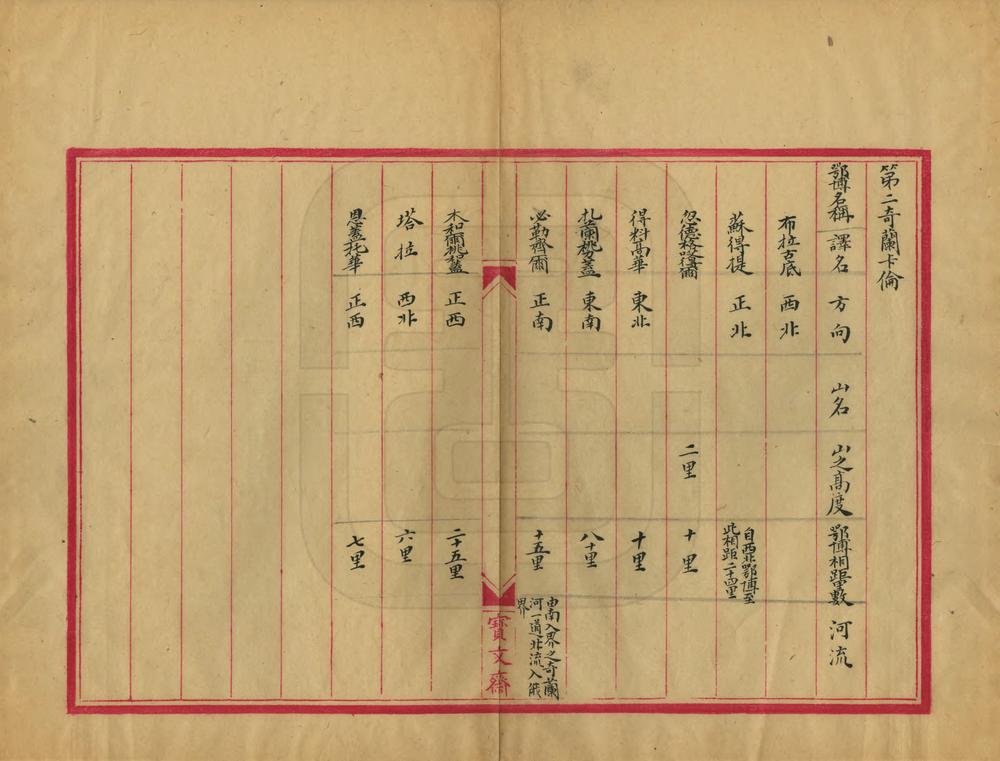 第二奇蘭卡倫
鄂博名稱 譯名 方向 山名 山之高度 鄂博相距里數 河流
布拉古底 西北
蘇得提 正北 自西北鄂博至此相距二十四里
忽德格喀爾 二里 十里
得料高華 東北 十里
札蘭桃蓋 東南 八十里
必勒齊爾 正南 十五里 由南入界之奇蘭河一道北流入俄界
寶文齋
木和爾桃蓋 正西 二十五里
塔拉 西北 六里
恩蓋托華 正西 七里